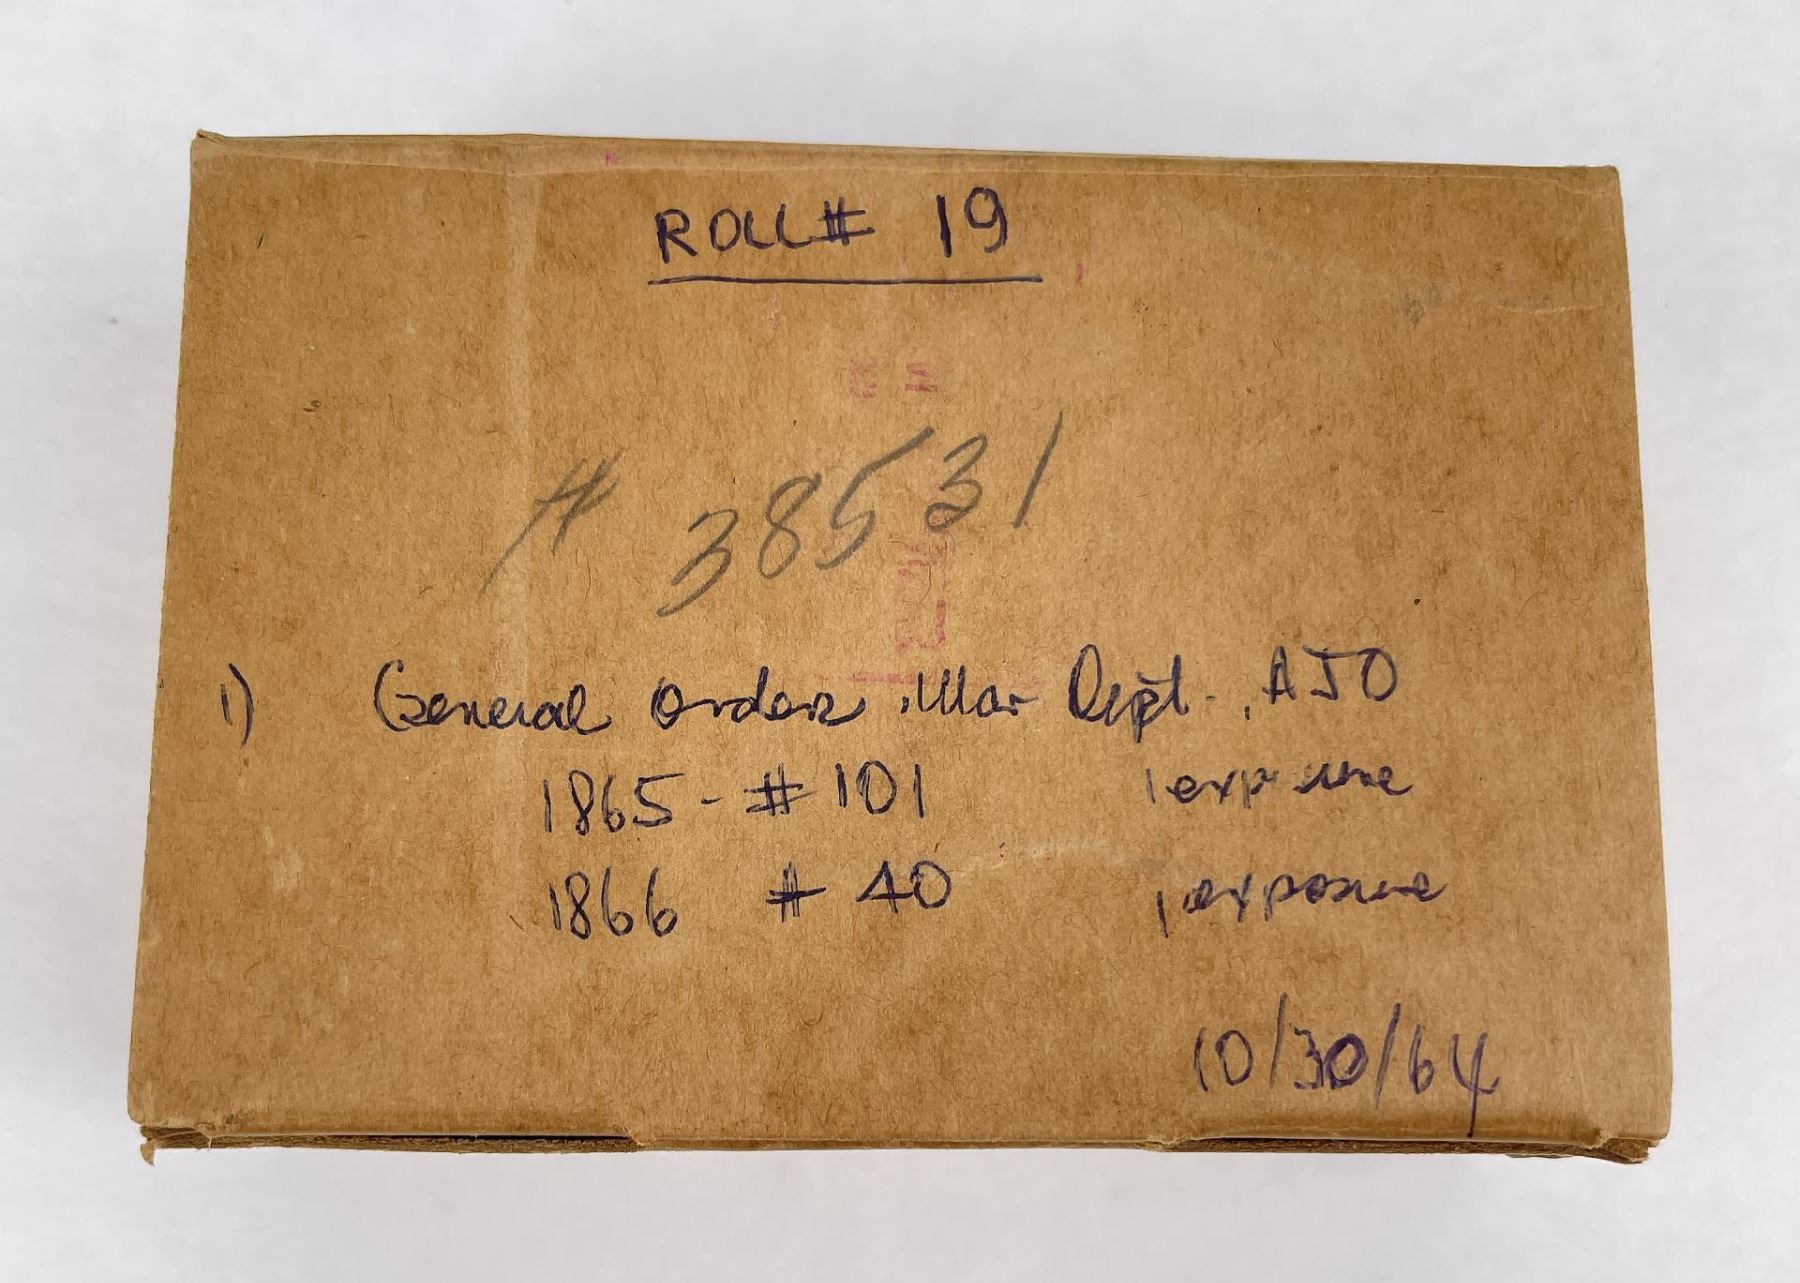 ROLL # 19
# 38531
1) General Orders, War Dept., AJO
1865 - # 101 1 exposure
1866 # 40 1 exposure
10/30/64